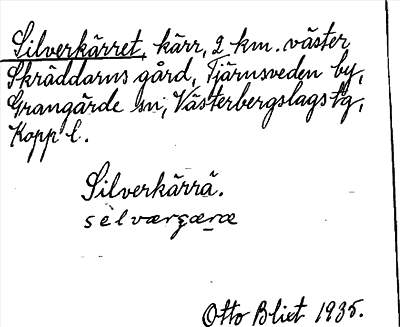 Silverkärret, kärr, 2 km. väster
Skräddarns gård, Tjärnsveden by,
Grangärde sn, Västerbergslags tg,
Kopp l.
Silverkärrä.
Otto Blixt 1935.